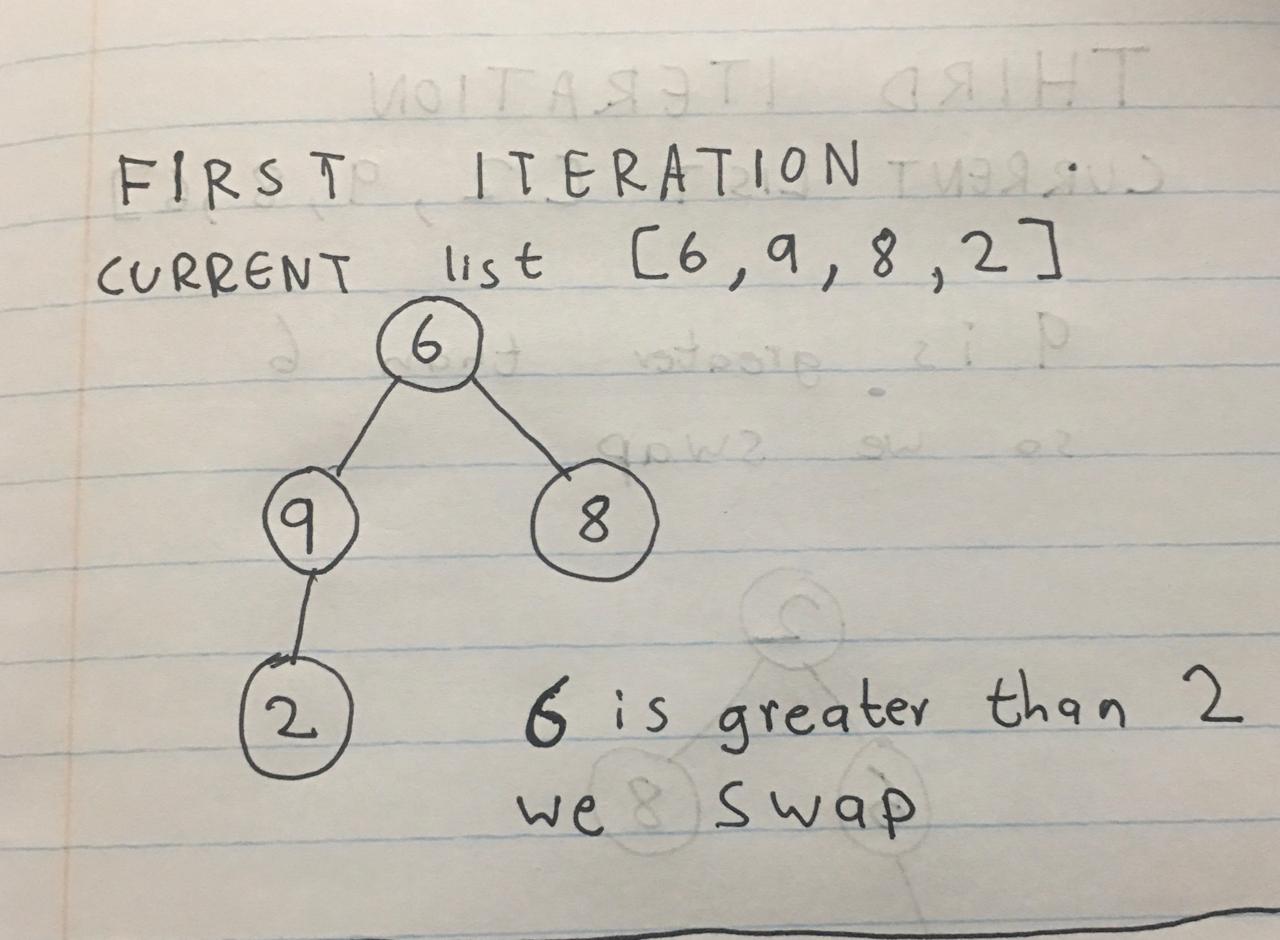 FIRST ITERATION
CURRENT list [6,9,8,2]
6
9 8
2
6 is greater than 2
we swap